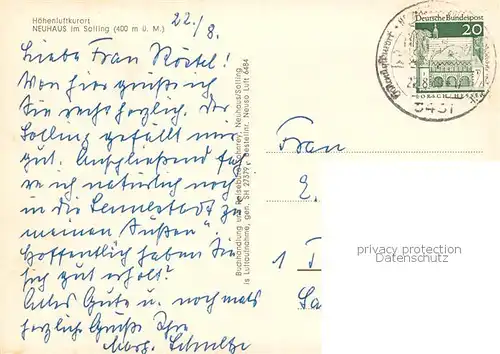 Höhenluftkurort
NEUHAUS im Solling (400 m ü. M.)
22./8.
Liebe Frau Röstel!
Von hier grüße ich
Sie recht herzlich. Der
Solling gefällt mir
gut. Anschließend fah-
re ich natürlich noch
in die Lennestadt zu
meinen
Hoffentlich haben Sie
sich gut erholt?
Alles Gute u. nochmals
herzliche Grüße Ihre
Marg. Schultze
Buchhandlung und Reisebüro Neuhaus/Solling
Luftaufnahme, gen. SH 27379, Bestellnr. Neuso Luft 6484
Deutsche Bundespost
20
LORSCH/HESSEN
3451
Frau
E.
1
privacy protection
Datenschutz